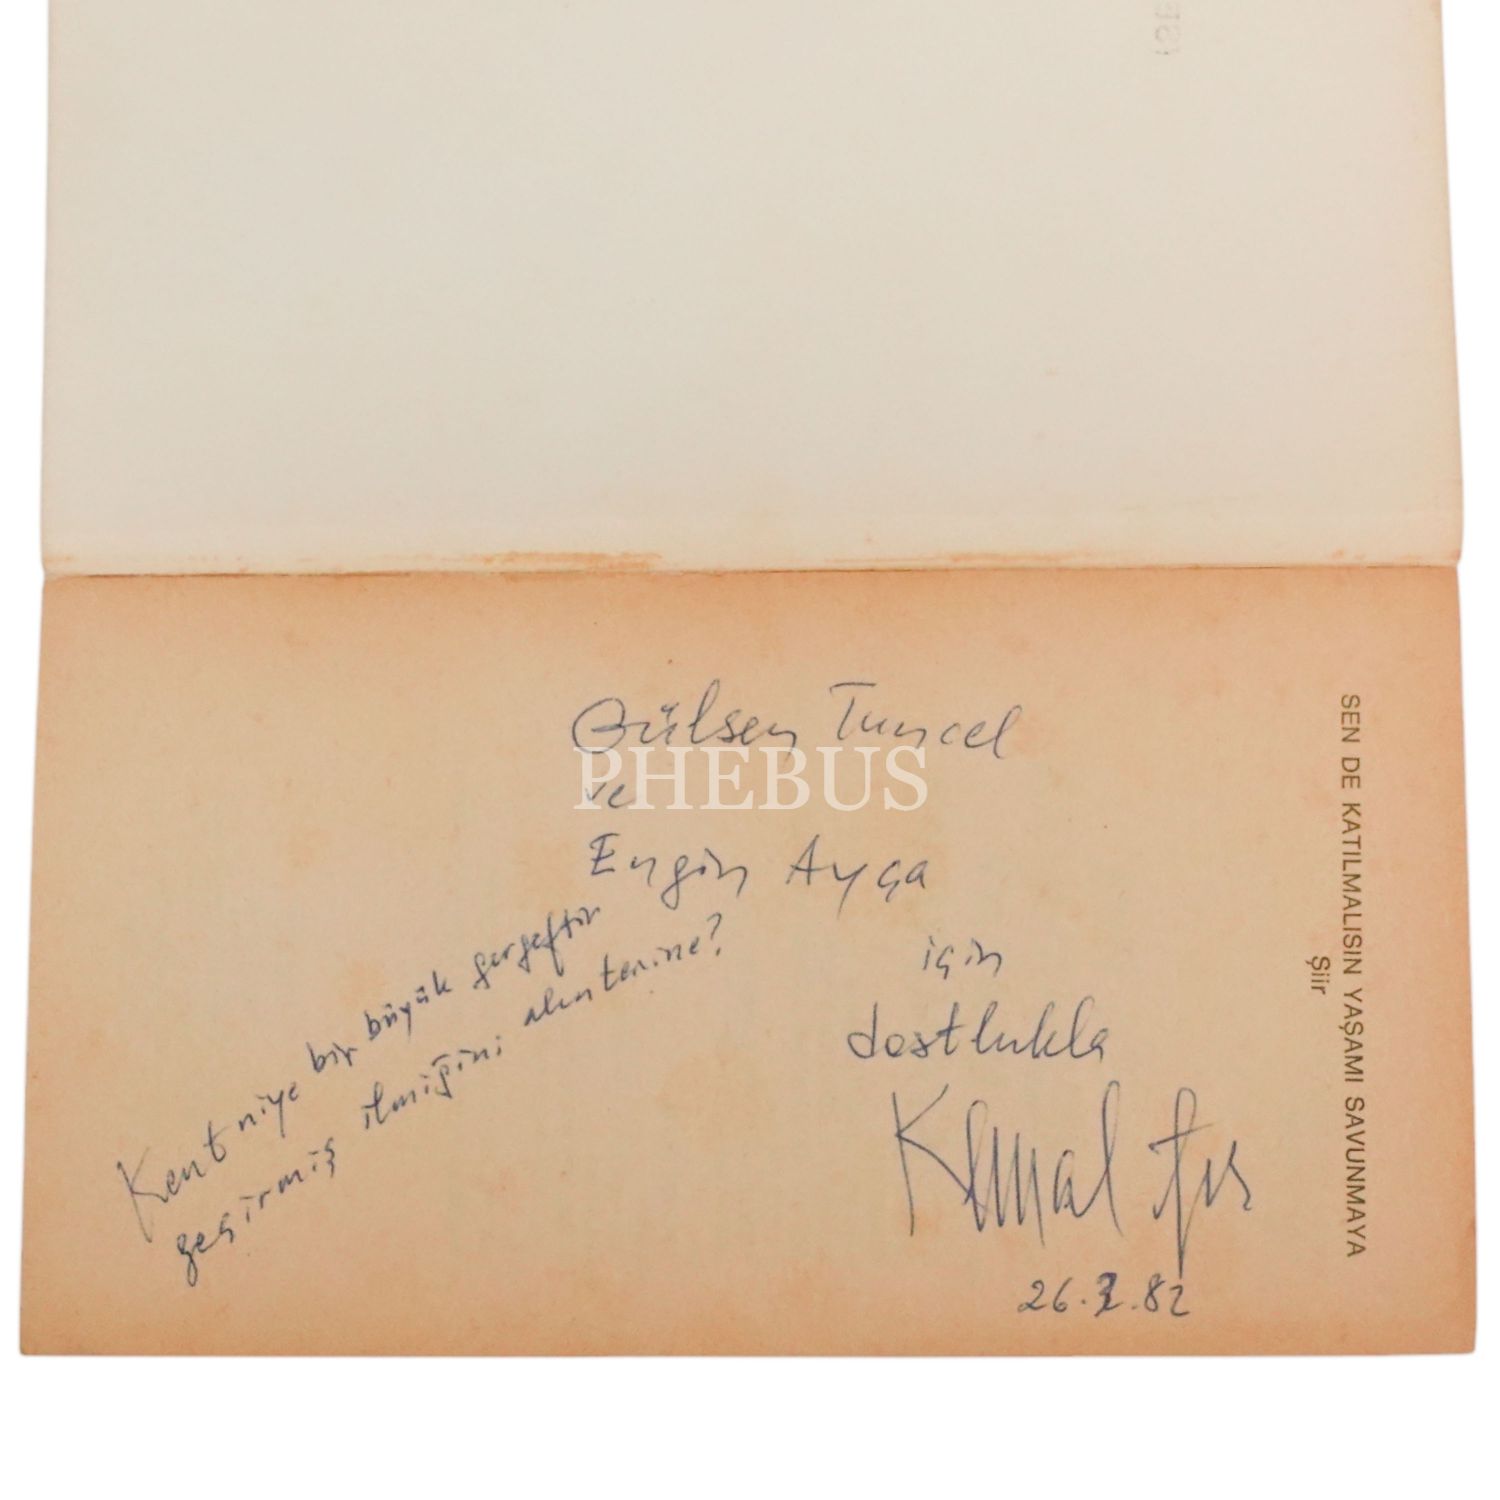 Gülsen Tuncel
ve
Engin Ayça
için
dostlukla
Kemal
26.2.82
Kent niye bir büyük gergeftir
geçirmiş ilmiğini alınterine?
SEN DE KATILMALISIN YAŞAMI SAVUNMAYA
Şiir
PHEBUS